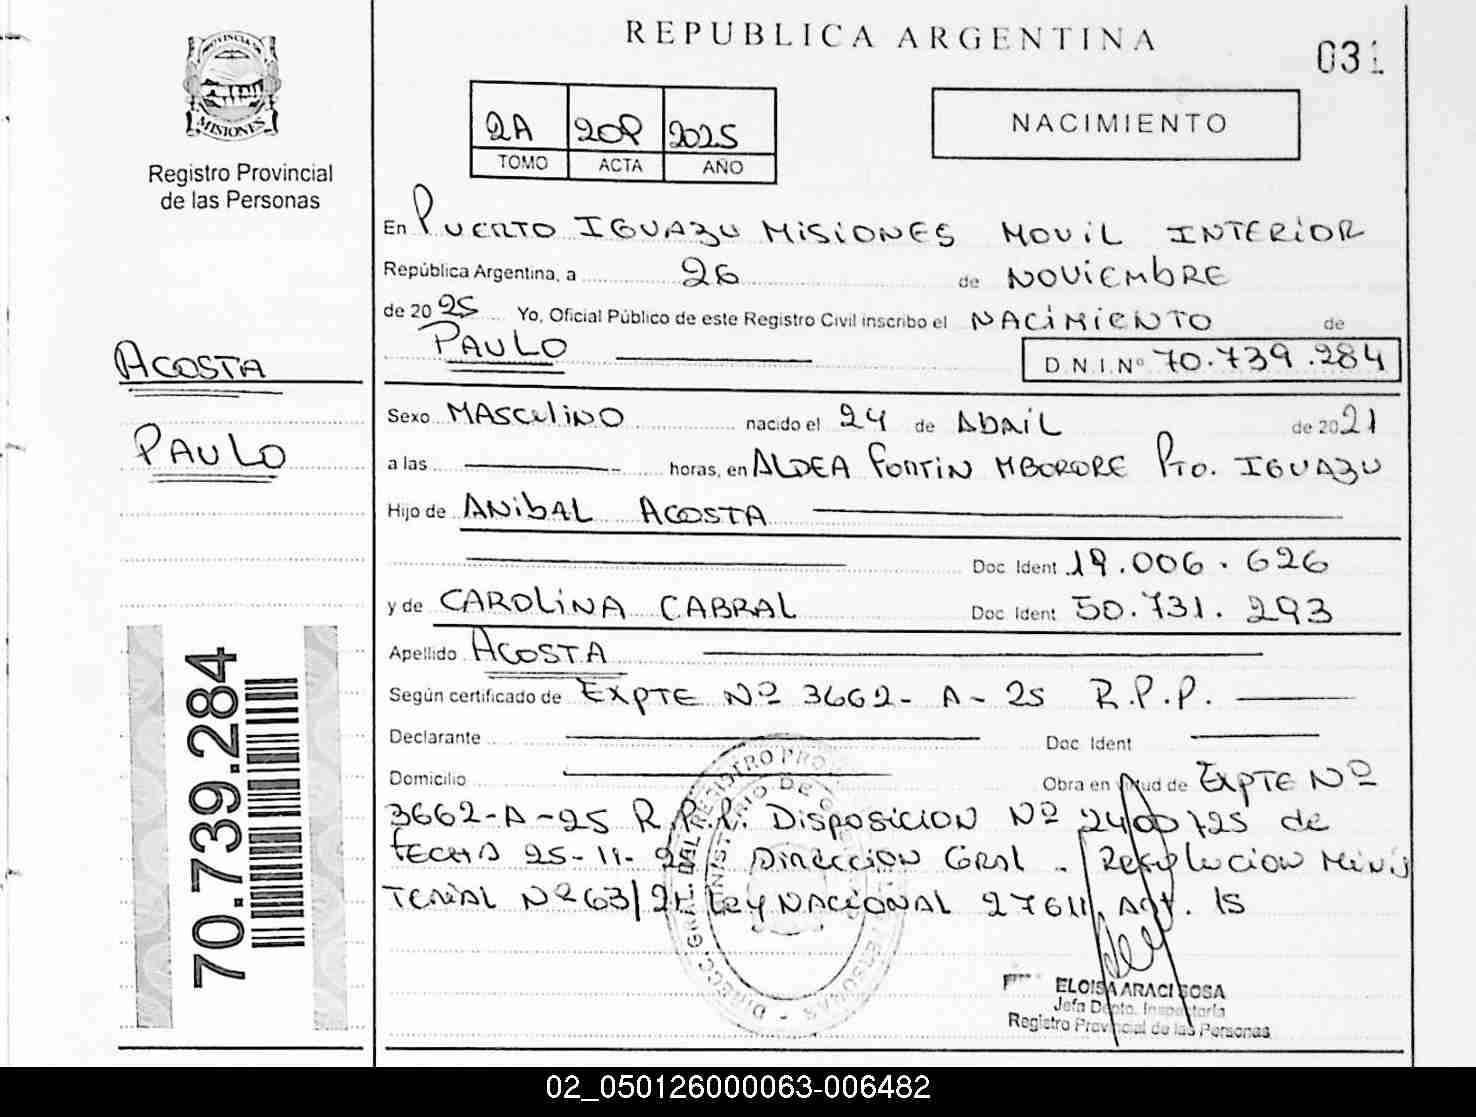 REPUBLICA ARGENTINA
031
PROVINCIA DE
MISIONES
Registro Provincial
de las Personas
2A 209 2025
TOMO ACTA AÑO
NACIMIENTO
En PUERTO IGUAZU MISIONES MOVIL INTERIOR
República Argentina, a 26 de NOVIEMBRE
de 2025 Yo, Oficial Público de este Registro Civil inscribo el NACIMIENTO de
PAULO D.N.I.Nº 70.739.284
ACOSTA
PAULO
Sexo MASCULINO nacido el 24 de ABRIL de 2021
a las horas, en ALDEA FORTIN MBORORE PTO. IGUAZU
Hijo de ANIBAL ACOSTA
Doc Ident 19.006.626
y de CAROLINA CABRAL Doc Ident 50.731.293
Apellido ACOSTA
Según certificado de EXPTE Nº 3662-A-25 R.P.P.
Declarante Doc Ident
Domicilio Obra en virtud de EXPTE Nº
3662-A-25 R.P.P. DISPOSICION Nº 2400/25 de
FECHA 25-11-25 DIRECCION GRAL - RESOLUCION MINIS
TERIAL Nº 63/21 LEY NACIONAL 27611, ART. 15
70.739.284
ELOISA ARACI SOSA
Jefa Depto. Inspectoría
Registro Provincial de las Personas
02_050126000063-006482